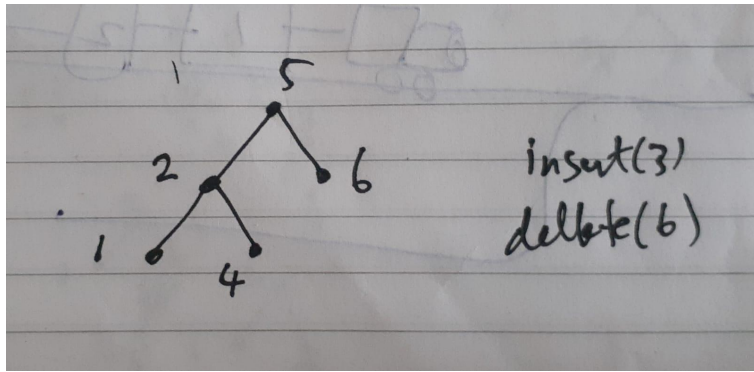 5
2 6
1 4
insert(3)
delete(6)